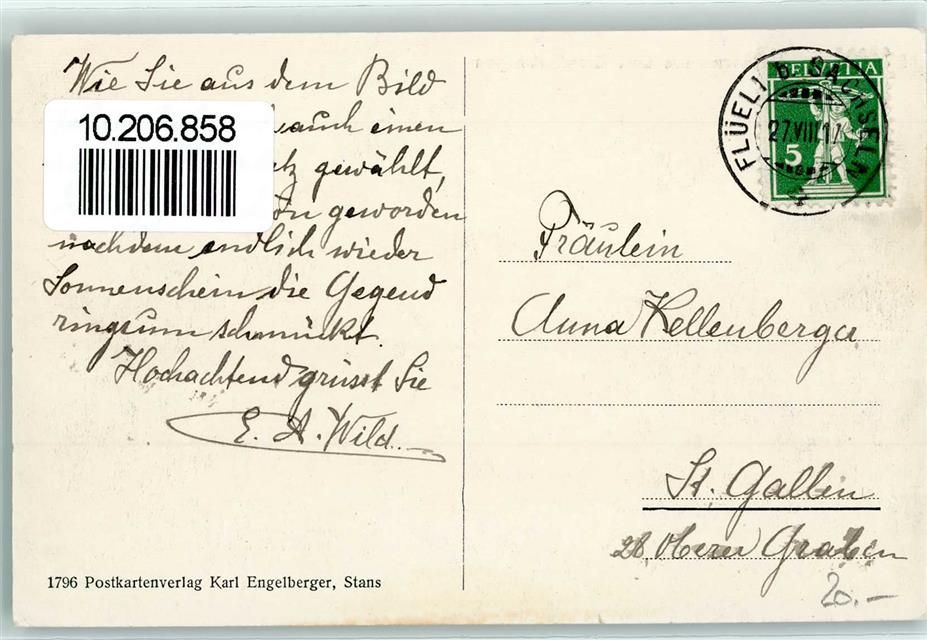 Wie Sie aus dem Bild
auch einen
gewählt,
geworden
nachdem endlich wieder
Sonnenschein die Gegend
ringsum schmückt.
Hochachtend grüsst Sie
E. A. Wild.
10.206.858
HELVETIA
5
FLÜELI b. SACHSELN
27.VIII.17
Fräulein
Anna Kellenberger
St. Gallen
28 Oberer Graben
20.-
1796 Postkartenverlag Karl Engelberger, Stans